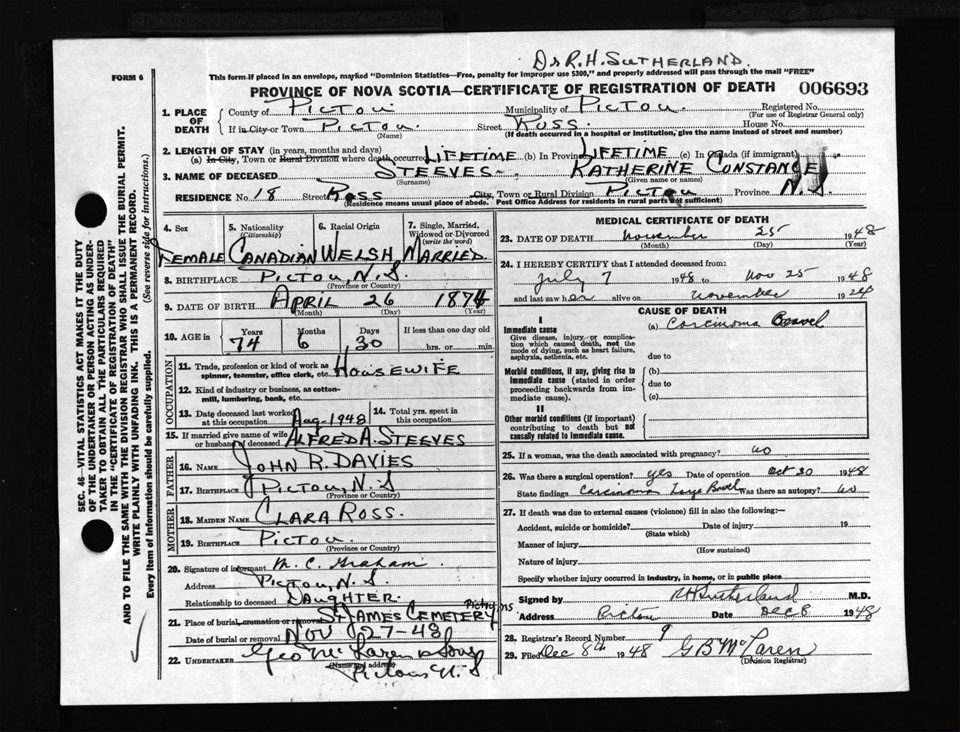 Dr R.H. SUTHERLAND.
FORM 6
This form if placed in an envelope, marked "Dominion Statistics—Free, penalty for improper use $300," and properly addressed will pass through the mail "FREE"
PROVINCE OF NOVA SCOTIA—CERTIFICATE OF REGISTRATION OF DEATH 006693
1. PLACE OF DEATH
County of PICTOU Municipality of PICTOU. Registered No.
(For use of Registrar General only)
If in City or Town PICTOU. Street ROSS. House No.
(Name) (If death occurred in a hospital or institution, give name instead of street and number)
2. LENGTH OF STAY (in years, months and days)
(a) In City, Town or Rural Division where death occurred LIFETIME (b) In Province LIFETIME (c) In Canada (if immigrant)
3. NAME OF DECEASED STEEVES- KATHERINE CONSTANCE
(Surname) (Given name or names)
RESIDENCE No. 18 Street ROSS City, Town or Rural Division PICTOU Province N.S.
(Residence means usual place of abode. Post Office Address for residents in rural parts not sufficient)
4. Sex 5. Nationality (Citizenship) 6. Racial Origin 7. Single, Married, Widowed or Divorced (write the word)
FEMALE CANADIAN WELSH MARRIED.
8. BIRTHPLACE PICTOU, N.S.
(Province or Country)
9. DATE OF BIRTH APRIL 26 1874
(Month) (Day) (Year)
10. AGE in Years Months Days If less than one day old
74 6 30 hrs. or min.
OCCUPATION
11. Trade, profession or kind of work as spinner, teamster, office clerk, etc. HOUSEWIFE
12. Kind of industry or business, as cotton-mill, lumbering, bank, etc.
13. Date deceased last worked at this occupation Aug-1948 14. Total yrs. spent in this occupation
15. If married give name of wife or husband of deceased ALFRED A. STEEVES
FATHER
16. Name JOHN R. DAVIES
17. Birthplace PICTOU, N.S
(Province or Country)
MOTHER
18. MAIDEN NAME CLARA ROSS.
19. BIRTHPLACE PICTOU.
(Province or Country)
20. Signature of informant M. C. Graham.
Address PICTOU, N.S
Relationship to deceased DAUGHTER.
21. Place of burial, cremation or removal ST JAMES CEMETERY Pictou, NS
Date of burial or removal NOV 27-48
22. UNDERTAKER Geo McLaren & Sons
(Name and address)
Pictou N.S
MEDICAL CERTIFICATE OF DEATH
23. DATE OF DEATH November 25 1948
(Month) (Day) (Year)
24. I HEREBY CERTIFY that I attended deceased from:
July 7 1948 to Nov 25 1948
and last saw her alive on November 1924
CAUSE OF DEATH
I
Immediate cause
Give disease, injury or complication which caused death, not the mode of dying, such as heart failure, asphyxia, asthenia, etc.
(a) Carcinoma Bowel
due to
Morbid conditions, if any, giving rise to immediate cause (stated in order proceeding backwards from immediate cause).
(b)
due to
(c)
II
Other morbid conditions (if important) contributing to death but not causally related to immediate cause.
25. If a woman, was the death associated with pregnancy? no
26. Was there a surgical operation? yes Date of operation Oct 20 1948
State findings carcinoma Large Bowel Was there an autopsy? no
27. If death was due to external causes (violence) fill in also the following:—
Accident, suicide or homicide? Date of injury 19
(State which)
Manner of injury
(How sustained)
Nature of injury
Specify whether injury occurred in industry, in home, or in public place
Signed by RH Sutherland M.D.
Address Pictou Date Dec 8 1948
28. Registrar's Record Number 9
29. Filed Dec 8th 1948 G B McLaren
(Division Registrar)
SEC. 46—VITAL STATISTICS ACT MAKES IT THE DUTY
OF THE UNDERTAKER OR PERSON ACTING AS UNDER-
TAKER TO OBTAIN ALL THE PARTICULARS REQUIRED
IN THE "CERTIFICATE OF REGISTRATION OF DEATH"
AND TO FILE THE SAME WITH THE DIVISION REGISTRAR WHO SHALL ISSUE THE BURIAL PERMIT.
WRITE PLAINLY WITH UNFADING INK. THIS IS A PERMANENT RECORD.
Every item of Information should be carefully supplied. (See reverse side for instructions.)